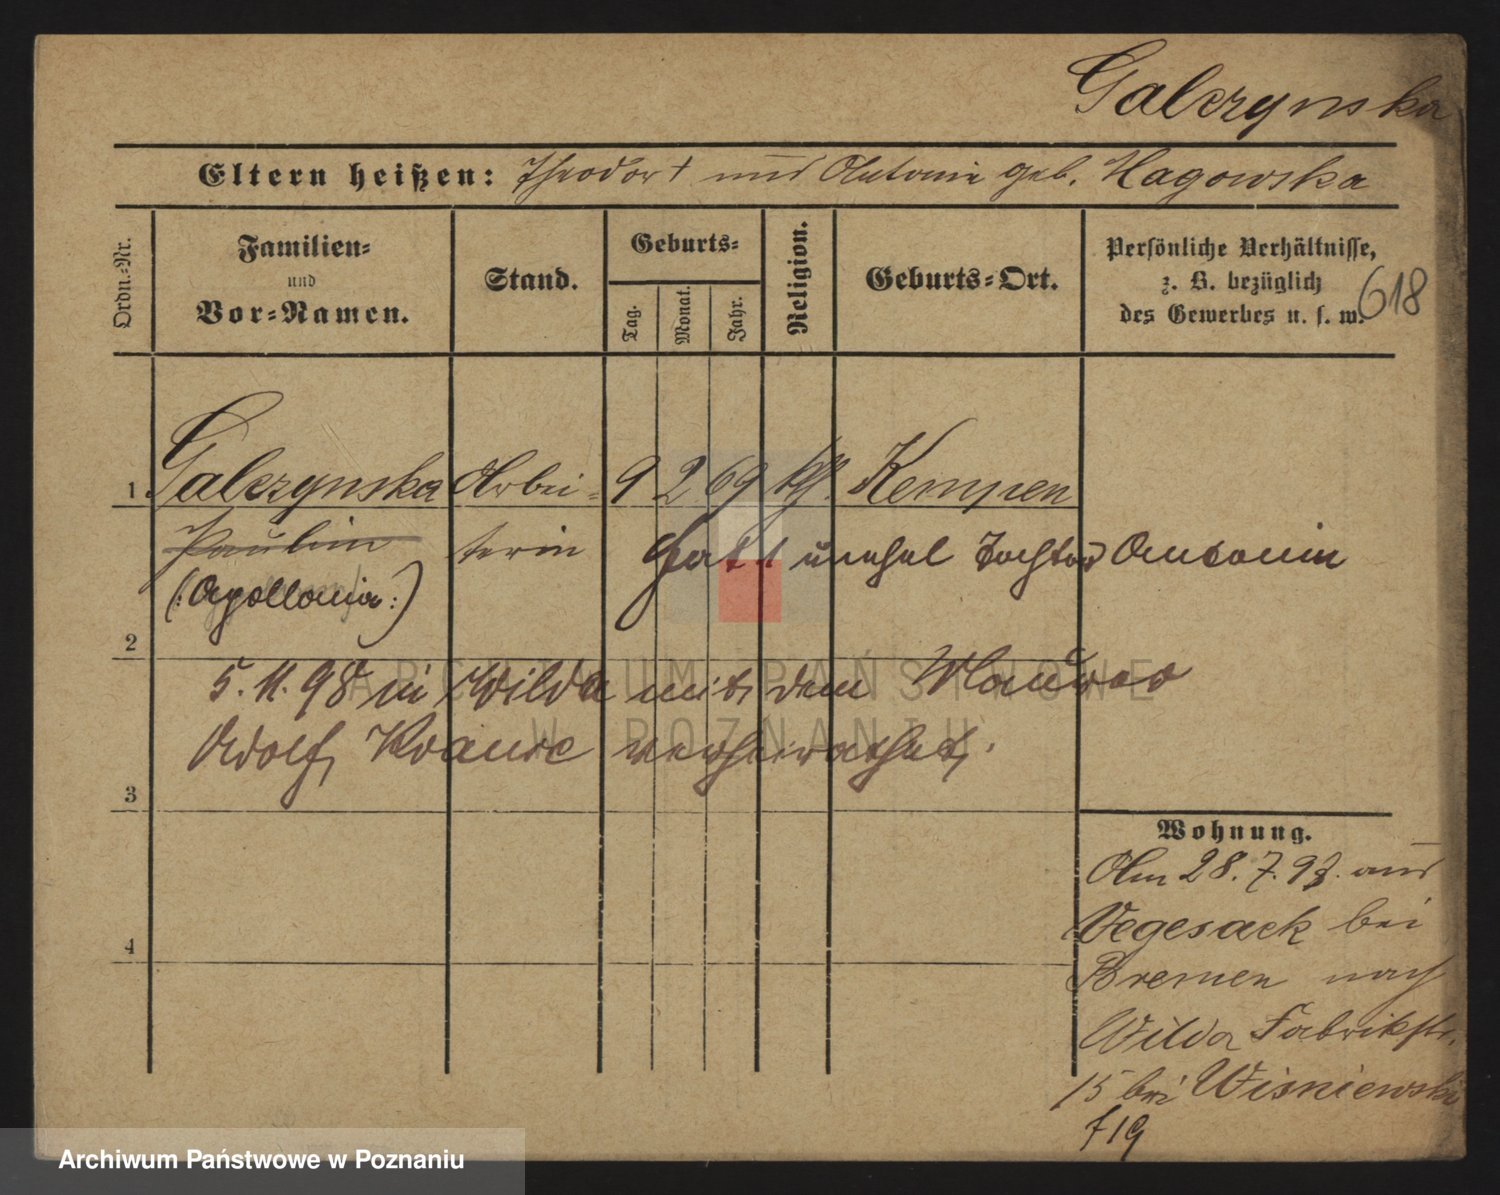 Galczynska
Eltern heißen: Theodor † und Antonie geb. Nagowska
Ordn.-Nr.
Familien-
und
Vor-Namen.
Stand.
Geburts-
Tag.
Monat.
Jahr.
Religion.
Geburts-Ort.
Persönliche Verhältnisse,
z. B. bezüglich
des Gewerbes u. s. w.
618
1 Galczynska Arbei- 9 2 69 kth. Kempen
Paulin terin Hat 1 unehel Tochter Antonie
(:Apollonia:)
2
5. 11. 98 in Wilda mit dem Maurer
Adolf Krause verheirathet.
3
4
Wohnung.
Am 28. 7. 93. aus
Vegesack bei
Bremen nach
Wilda Fabrikstr.
15 bei Wisniewski
f 19
ARCHIWUM PAŃSTWOWE
W POZNANIU
Archiwum Państwowe w Poznaniu